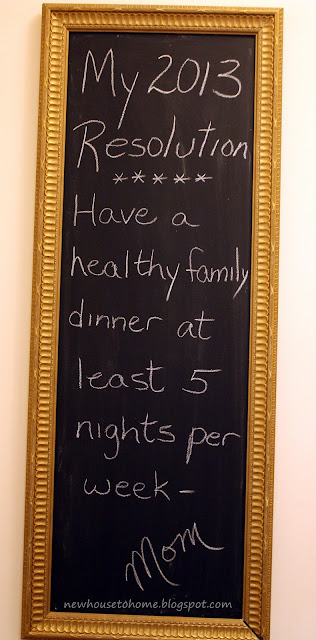 My 2013
Resolution
*****
Have a
healthy family
dinner at
least 5
nights per
week-
Mom
newhousetohome.blogspot.com